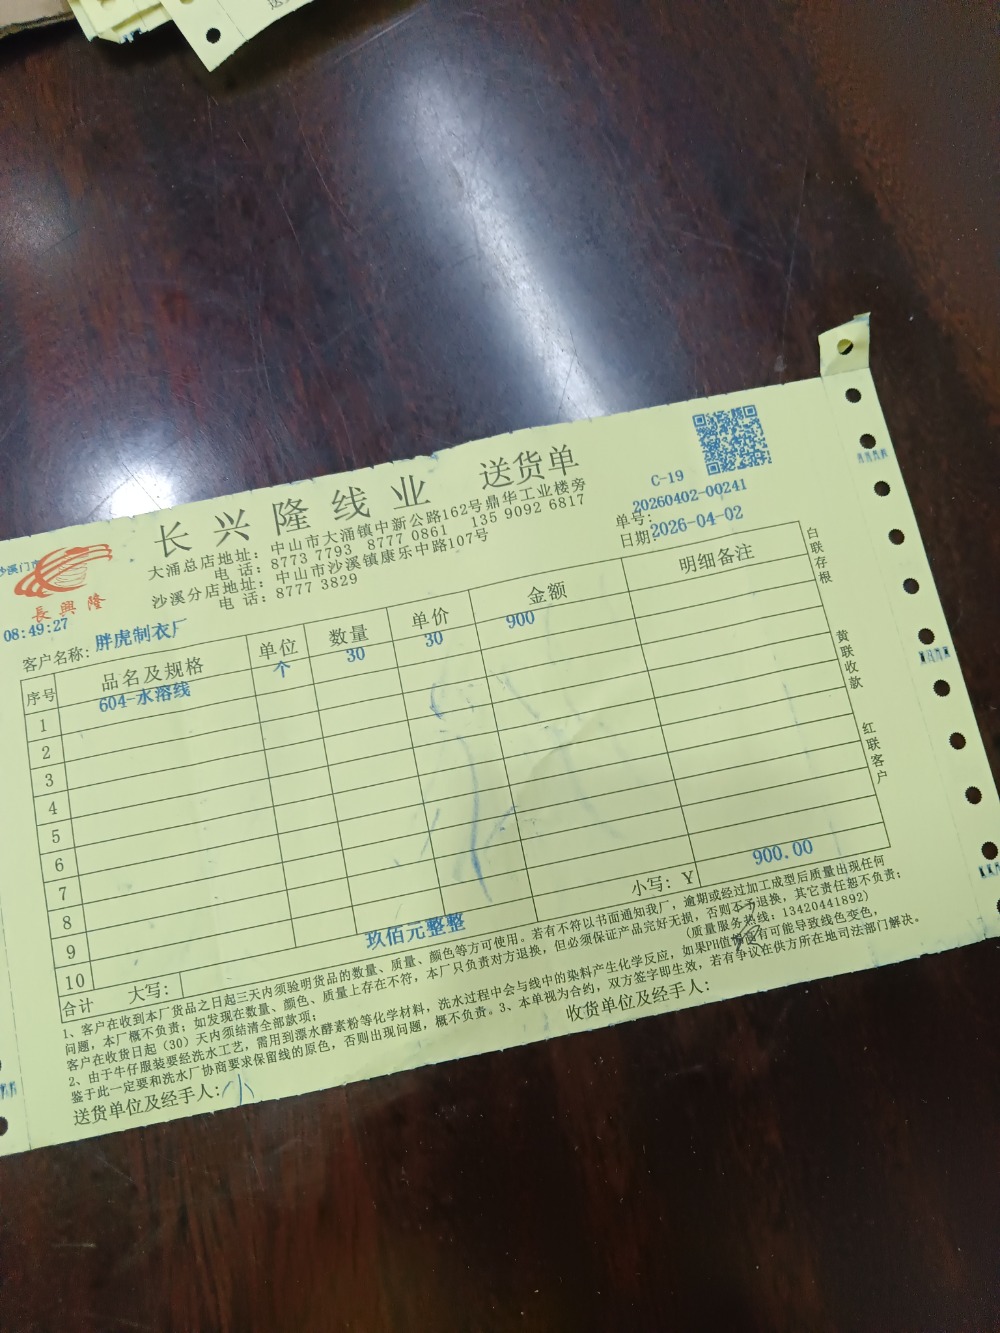 长兴隆线业 送货单
C-19
大涌总店地址：中山市大涌镇中新公路162号鼎华工业楼旁
电 话：8773 7793 8777 0861 135 9092 6817
沙溪分店地址：中山市沙溪镇康乐中路107号
电 话：8777 3829
单号：20260402-00241
日期：2026-04-02
沙溪门市
長興隆
08:49:27
客户名称：胖虎制衣厂
序号 品名及规格 单位 数量 单价 金额 明细备注
1 604-水溶线 个 30 30 900
2
3
4
5
6
7
8
9
10
合计 大写： 玖佰元整整 小写：￥ 900.00
白联存根
黄联收款
红联客户
1、客户在收到本厂货品之日起三天内须验明货品的数量、质量、颜色等方可使用。若有不符以书面通知我厂，逾期或经过加工成型后质量出现任何
问题，本厂概不负责；如发现在数量、颜色、质量上存在不符，本厂只负责对方退换，但必须保证产品完好无损，否则不予退换，其它责任恕不负责；
客户在收货日起（30）天内须结清全部款项； （质量服务热线：13420441892）
2、由于牛仔服装要经洗水工艺，需用到漂水酵素粉等化学材料，洗水过程中会与线中的染料产生化学反应，如果PH值偏高有可能导致线色变色，
鉴于此一定要和洗水厂协商要求保留线的原色，否则出现问题，概不负责。3、本单视为合约，双方签字即生效，若有争议在供方所在地司法部门解决。
送货单位及经手人：小 收货单位及经手人：